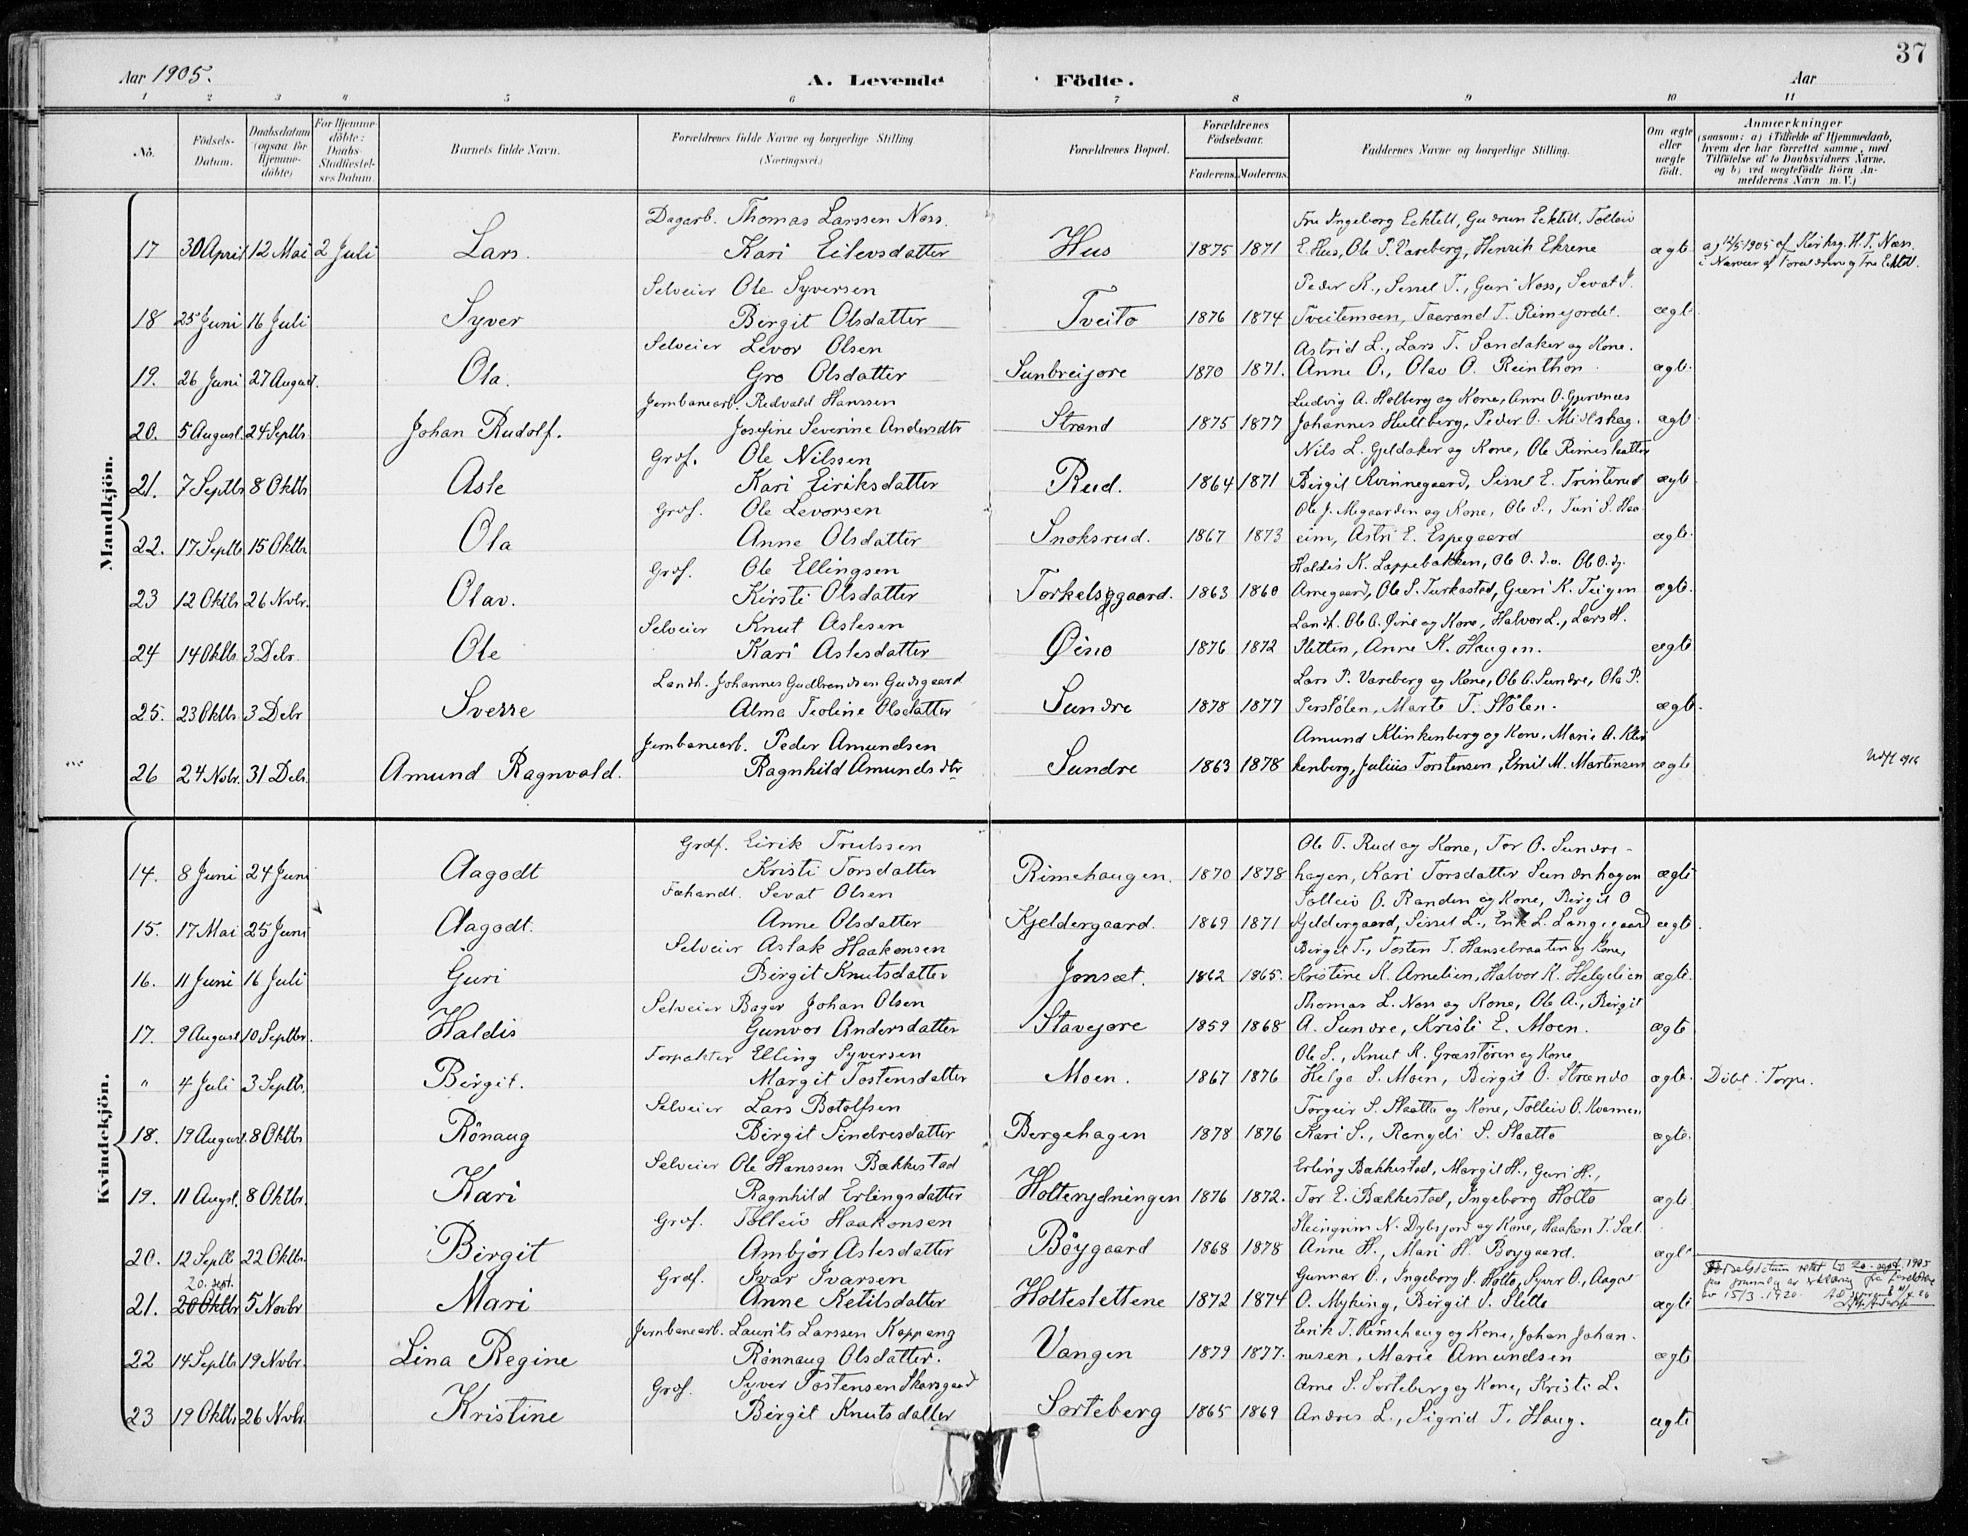 37
Aar 1905. A. Levende Födte. Aar
1 2 3 4 5 6 7 8 9 10 11
No. Födsels-Datum. Daabsdatum (ogsaa for Hjemme-döbte) For Hjemme-döbte: Daabs-Stadfæstel-ses Datum. Barnets fulde Navn. Forældrenes fulde Navne og borgerlige Stilling (Næringsvei.) Forældrenes Bopæl. Forældrenes Födselsaar. Faderens. Moderens. Faddernes Navne og borgerlige Stilling. Om ægte eller uægte födt. Anmærkninger (saasom: a) i Tilfælde af Hjemmedaab, hvem der har forrettet samme, med Tilföielse af to Daabsvidners Navne, og b) ved uægtefödte Börn An-melderens Navn m. V.)
Mandkjön.
Dagarb. Thomas Larssen Næss. Fru Ingeborg Ecktell, Gudrun Ecktell, Tolleiv
17 30 April 12 Mai 2 Juli Lars. Kari Eilevsdatter Hus 1875 1871 E. Hus, Ole P. Vareberg, Henrik Ekrene ægte a) 12/5 1905 af Kirkesg. H. T. Næss.
i Nærvær af Forældrene og Fru Ecktell.
Selveier Ole Syversen Peder K., Sissel T., Guri Næss, Sevat J.
18 25 Juni 16 Juli Syver Birgit Olsdatter Tveito 1876 1874 Tveitemoen, Taarand T. Rimejordet. ægte
Selveier Levor Olsen Astrid L., Lars T. Sandaker og Kone.
19. 26 Juni 27 August. Ola. Gro Olsdatter Sunbreijore 1870 1871. Anne O., Olav O. Reinthon ægte.
Jernbanearb. Redvald Hanssen Ludvig A. Holberg og Kone, Anne O. Gjerdnæs
20. 5 August. 24 Septbr. Johan Rudolf. Josefine Severine Andersdtr Strand 1875 1877 Johannes Hultberg, Peder O. Midlskag. ægte
Grdf. Ole Nilssen Nils L. Gjeldaker og Kone, Ole Rimeslaatten
21. 7 Septbr 8 Oktbr Asle Kari Eiriksdatter Rud. 1864 1871 Birgit Kvinnegaard, Sissel E. Trinterud ægte
Grdf. Ole Levorsen Ole J. Megaarden og Kone, Ole S., Turi S. Haa-
22. 17 Septb 15 Oktbr. Ola Anne Olsdatter Snoksrud. 1867 1873 eim, Astri E. Espegaard ægte.
Grdf. Ole Ellingsen Haldis K. Lappebakken, Ole O. d. æ. Ole O. d. y.
23 12 Oktbr 26 Nvbr. Olav. Kirsti Olsdatter Torkelsgaard. 1863 1860 Arnegaard, Ole S. Turkastad, Guri K. Teigen ægte.
Selveier Knut Aslesen Landh. Ole O. Øino og Kone, Halvor L., Lars H.
24 14 Oktbr. 3 Debr. Ole Kari Aslesdatter Øino 1876 1872 Sletten, Anne K. Haugen. ægte
Landh. Johannes Gudbrandsen Gudsgaard Lars P. Vareberg og Kone, Ole O. Sundre, Ole P.
25. 23 Oktbr. 3 Debr Sverre Alma Teoline Olsdatter Sundre 1878 1877 Perstölen, Marte T. Stölen. ægte.
Jernbanearb. Peder Amundsen Amund Klinkenberg og Kone, Marie O. Klin
26 24 Nobr. 31 Debr. Amund Ragnvald. Ragnhild Amundsdtr Sundre 1863 1878 kenberg, Julius Torstensen, Emil M. Martinsen ægte
Kvindekjön.
Grdf. Eirik Trulssen Ole T. Rud og Kone, Tor O. Sundre-
14. 8 Juni 24 Juni Aagodt Kristi Torsdatter Rimehaugen. 1870 1878 hagen, Kari Torsdatter Sundrehagen ægte
Fæhandl. Sevat Olsen Tolleiv O. Randen og Kone, Birgit O
15. 17 Mai 25 Juni Aagodt. Anne Olsdatter Kjeldergaard. 1869 1871 Kjeldergaard, Sissel L., Erik L. Langegaard ægte.
Selveier Aslak Haakonsen Birgit T., Tosten T. Hansebraaten og Kone,
16. 11 Juni 16 Juli Guri Birgit Knutsdatter Jonsæt. 1862 1865. Kristine K. Amelien, Halvor K. Helgelien ægte.
Selveier Bager Johan Olsen Thomas L. Næss og Kone, Ole A., Birgit
17. 9 August 10 Septbr. Haldis Gunvor Andersdatter Stavejore 1859 1868 A. Sundre, Kristi E. Moen. ægte
Forpakter Elling Syversen Ole S., Knut K. Græsstøren og Kone
" 4 Juli 3 Septbr. Birgit. Margit Tostensdatter Moen. 1867 1876 Helge S. Moen, Birgit O. Strando ægte. Döbt i Torpe.
Selveier Lars Botolfsen Torgeir S. Slaatto og Kone, Tolleiv O. Kvamen
18. 19 August. 8 Oktbr Rönaug Birgit Sindresdatter Bergehagen 1878 1876 Kari S., Rangdi S. Slaatto ægte.
Selveier Ole Hanssen Bækkestad Erling Bækkestad, Margit H., Guri H.,
19. 11 Augst. 8 Oktbr. Kari Ragnhild Erlingsdatter Holterydningen 1876 1872. Tor E. Bækkestad, Ingeborg Holto ægte
Grdf. Tolleiv Haakonsen Steingrim N. Dybsjord og Kone, Haakon T. Sæl.
20. 12 Septb 22 Oktbr. Birgit Ambjør Aslesdatter Böygaard 1868 1878 Anne H., Mari H. Böygaard. ægte
20. sept. Grdf. Ivar Ivarsen Gunnar O., Ingeborg J. Holto, Syver O., Aagot
21. 20 Oktbr 5 Novbr Mari Anne Ketilsdatter Holteslettene 1872 1874 O. Myking, Birgit S. Sletto ægte Födselsdatum rettet til 20. sept. 1905
av 15/3. 1920.
Jernbanearb. Laurits Larssen Koppang Eirik T. Rimehaug og Kone, Johan Johan-
22 14 Septbr 19 Novbr. Lina Regine Rönnaug Olsdatter. Vangen 1879 1877. nesen, Marie Amundsen ægte
Grdf. Syver Tostensen Skarsgaard Arne S. Sorteberg og Kone, Kristi L.
23 19 Oktbr 26 Nvbr. Kristine Birgit Knutsdatter Sorteberg 1865 1869 Andres L., Sigrid T. Haug. ægte